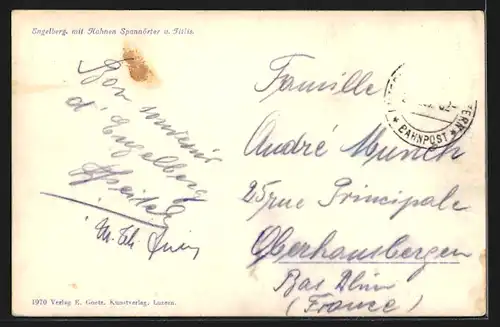 Engelberg, mit Hahnen Spannörter u. Titlis.
Bon souvenir
d'Engelberg
M. Th.
Famille
André Munch
25 rue Principale
Oberhausbergen
Bas Rhin
(France)
BAHNPOST
1970 Verlag E. Goetz, Kunstverlag, Luzern.